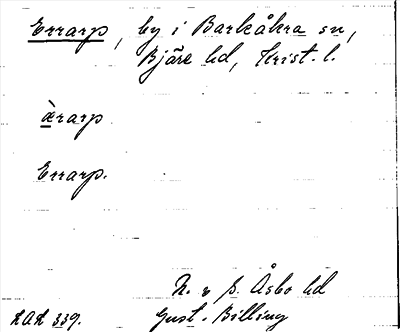 Errarp, by i Barkåkra sn,
Bjäre hd, Krist. l.
ærarp
Errarp.
N. o S. Åsbo hd
LAL 339. Gust. Billing